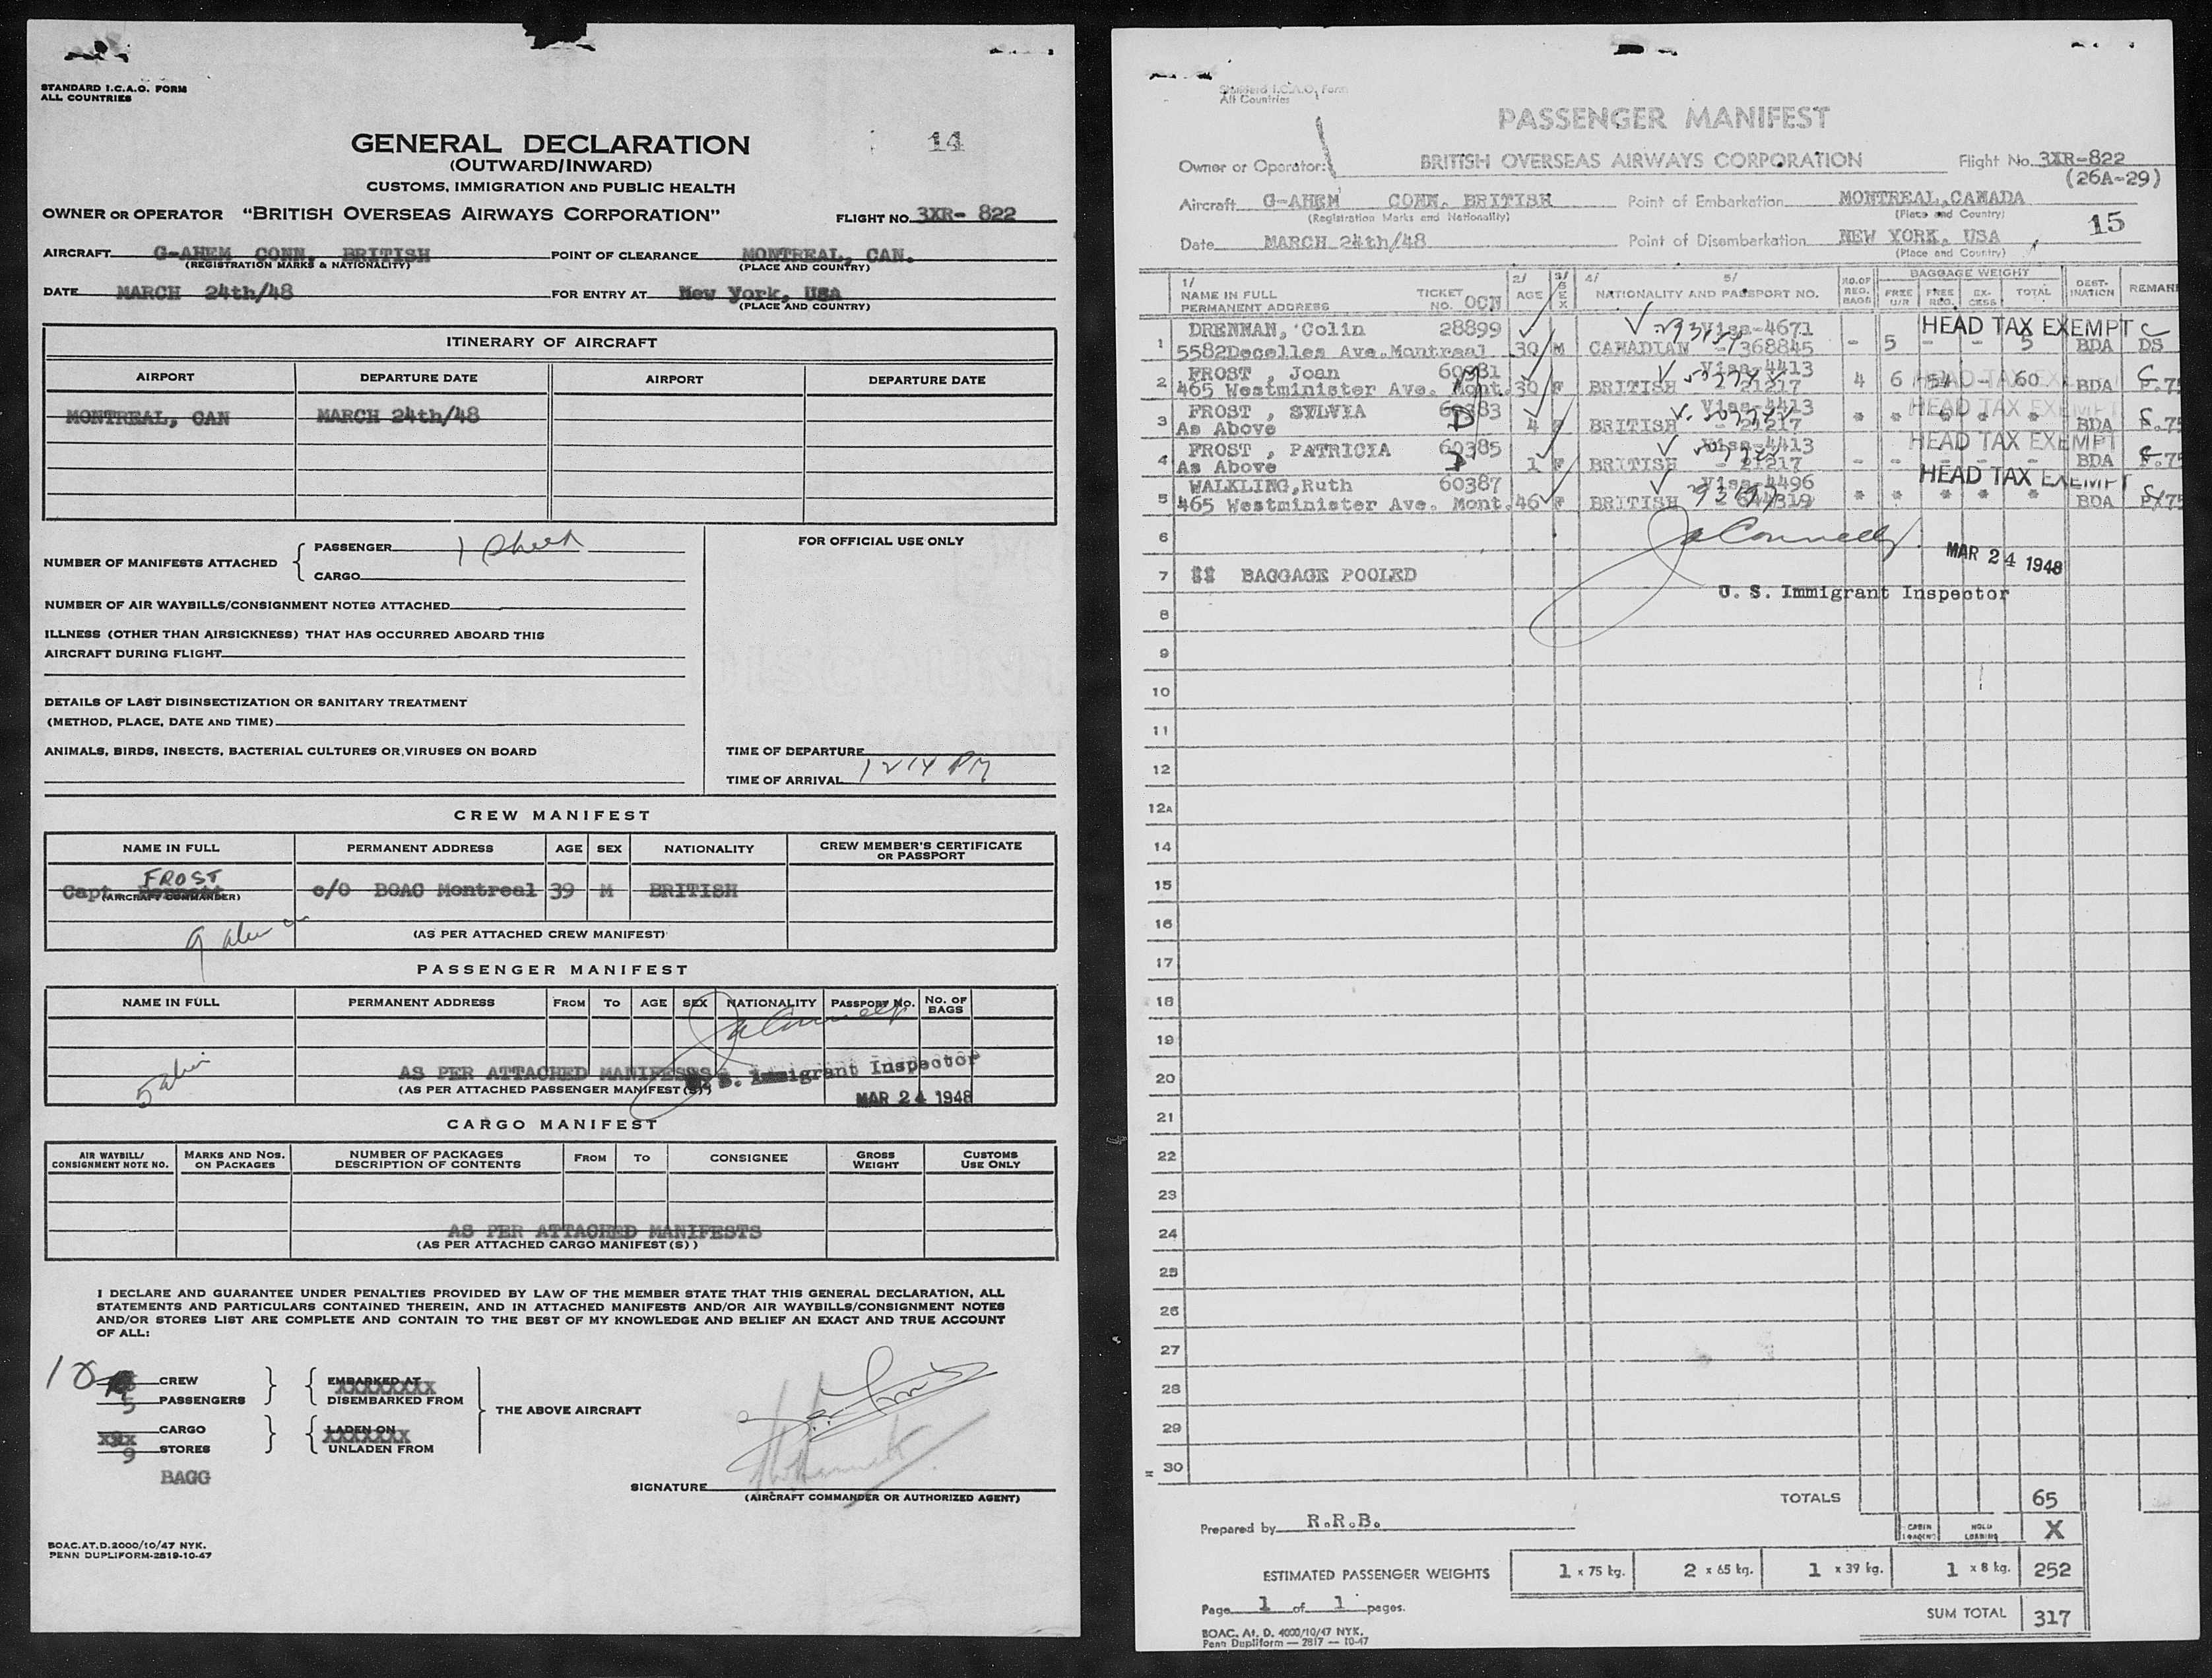 STANDARD I.C.A.O. FORM
ALL COUNTRIES
GENERAL DECLARATION
14
(OUTWARD/INWARD)
CUSTOMS, IMMIGRATION AND PUBLIC HEALTH
OWNER OR OPERATOR "BRITISH OVERSEAS AIRWAYS CORPORATION" FLIGHT NO. 3XR- 822
AIRCRAFT G-AHEM CONN. BRITISH POINT OF CLEARANCE MONTREAL, CAN.
(REGISTRATION MARKS & NATIONALITY) (PLACE AND COUNTRY)
DATE MARCH 24th/48 FOR ENTRY AT New York, USA
(PLACE AND COUNTRY)
ITINERARY OF AIRCRAFT
AIRPORT DEPARTURE DATE AIRPORT DEPARTURE DATE
MONTREAL, CAN MARCH 24th/48
NUMBER OF MANIFESTS ATTACHED
PASSENGER 1 sheet
CARGO
FOR OFFICIAL USE ONLY
NUMBER OF AIR WAYBILLS/CONSIGNMENT NOTES ATTACHED
ILLNESS (OTHER THAN AIRSICKNESS) THAT HAS OCCURRED ABOARD THIS
AIRCRAFT DURING FLIGHT
DETAILS OF LAST DISINSECTIZATION OR SANITARY TREATMENT
(METHOD, PLACE, DATE AND TIME)
ANIMALS, BIRDS, INSECTS, BACTERIAL CULTURES OR VIRUSES ON BOARD
TIME OF DEPARTURE
TIME OF ARRIVAL 1214 PM
CREW MANIFEST
NAME IN FULL PERMANENT ADDRESS AGE SEX NATIONALITY CREW MEMBER'S CERTIFICATE
OR PASSPORT
FROST
Capt. Bennett c/o BOAC Montreal 39 M BRITISH
(AIRCRAFT COMMANDER)
9 alien
(AS PER ATTACHED CREW MANIFEST)
PASSENGER MANIFEST
NAME IN FULL PERMANENT ADDRESS FROM TO AGE SEX NATIONALITY PASSPORT NO. NO. OF
BAGS
JaConnelly
5 alien
AS PER ATTACHED MANIFESTS
U. S. Immigrant Inspector
(AS PER ATTACHED PASSENGER MANIFEST(S))
MAR 24 1948
CARGO MANIFEST
AIR WAYBILL/
CONSIGNMENT NOTE NO. MARKS AND NOS.
ON PACKAGES NUMBER OF PACKAGES
DESCRIPTION OF CONTENTS FROM TO CONSIGNEE GROSS
WEIGHT CUSTOMS
USE ONLY
AS PER ATTACHED MANIFESTS
(AS PER ATTACHED CARGO MANIFEST(S))
I DECLARE AND GUARANTEE UNDER PENALTIES PROVIDED BY LAW OF THE MEMBER STATE THAT THIS GENERAL DECLARATION, ALL
STATEMENTS AND PARTICULARS CONTAINED THEREIN, AND IN ATTACHED MANIFESTS AND/OR AIR WAYBILLS/CONSIGNMENT NOTES
AND/OR STORES LIST ARE COMPLETE AND CONTAIN TO THE BEST OF MY KNOWLEDGE AND BELIEF AN EXACT AND TRUE ACCOUNT
OF ALL:
10 CREW EMBARKED AT
5 PASSENGERS DISEMBARKED FROM
THE ABOVE AIRCRAFT
CARGO LADEN ON
9 STORES UNLADEN FROM
BAGG
SIGNATURE
(AIRCRAFT COMMANDER OR AUTHORIZED AGENT)
BOAC.AT.D.2000/10/47 NYK.
PENN DUPLIFORM-2819-10-47
Standard I.C.A.O. Form
All Countries
PASSENGER MANIFEST
Owner or Operator: BRITISH OVERSEAS AIRWAYS CORPORATION Flight No. 3XR-822
(26A-29)
Aircraft G-AHEM CONN. BRITISH Point of Embarkation MONTREAL,CANADA
(Registration Marks and Nationality) (Place and Country)
15
Date MARCH 24th/48 Point of Disembarkation NEW YORK, USA
(Place and Country)
1/ NAME IN FULL
PERMANENT ADDRESS TICKET
NO. OCN 2/ AGE 3/ SEX 4/ 5/ NATIONALITY AND PASSPORT NO. NO. OF
REG.
BAGS BAGGAGE WEIGHT
FREE
U/R FREE
REG. EX-
CESS TOTAL DEST-
INATION REMARK
1 DRENNAN, Colin 28899 Visa-4671 HEAD TAX EXEMPT C
5582Decelles Ave.Montreal 30 M CANADIAN - 368845 - 5 - - 5 BDA DS
2 FROST , Joan 60381 Visa-4413 HEAD TAX EXEMPT
465 Westminister Ave. Mont. 30 F BRITISH - 21217 4 6 54 - 60 BDA F.75
3 FROST , SYLVIA 60383 Visa-4413 HEAD TAX EXEMPT
As Above 4 F BRITISH - 21217 * * * * * BDA F.75
4 FROST , PATRICIA 60385 Visa-4413 HEAD TAX EXEMPT
As Above 1 F BRITISH - 21217 - - - - - BDA F.75
5 WALKLING,Ruth 60387 Visa-4496 HEAD TAX EXEMPT
465 Westminister Ave. Mont. 46 F BRITISH 644319 * * * * * BDA
6
JaConnelly
MAR 24 1948
7 ** BAGGAGE POOLED
U. S. Immigrant Inspector
8
9
10
11
12
12A
14
15
16
17
18
19
20
21
22
23
24
25
26
27
28
29
30
TOTALS 65
Prepared by R.R.B.
CABIN
LOADING HOLD
LOADING X
ESTIMATED PASSENGER WEIGHTS 1 x 75 kg. 2 x 65 kg. 1 x 39 kg. 1 x 8 kg. 252
Page 1 of 1 pages.
SUM TOTAL 317
BOAC. At. D. 4000/10/47 NYK.
Penn Dupliform — 2817 — 10-47